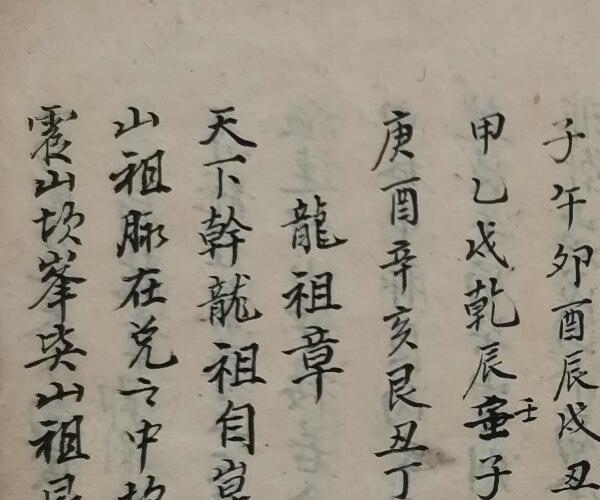 子午卯酉辰戌丑
甲乙戌乾辰壬子
庚酉辛亥艮丑丁
龍祖章
天下幹龍祖自崑
山祖脈在兌之中坎
震山坎峯巽山祖艮